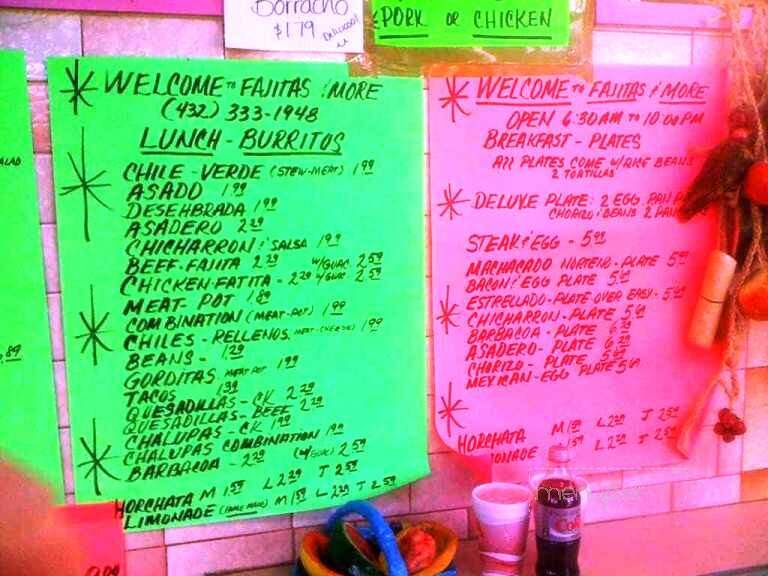 Borracho
$1.79 Delicious!
PORK OR CHICKEN
WELCOME TO FAJITAS & MORE
(432) 333-1948
LUNCH - BURRITOS
CHILE - VERDE (STEW-MEAT) 1.99
ASADO 1.99
DESEHBRADA 1.99
ASADERO 2.29
CHICHARRON & SALSA 1.99
BEEF-FAJITA 2.29 W/GUAC. 2.59
CHICKEN-FATITA - 2.29 W/GUAC. 2.59
MEAT - POT 1.89
COMBINATION (MEAT-POT) 1.99
CHILES - RELLENOS 1.99
BEANS - 1.29
GORDITAS MEAT POT 1.99
TACOS 1.39
QUESADILLAS - CK 2.29
QUESADILLAS - BEEF 2.29
CHALUPAS - CK 1.99
CHALUPAS COMBINATION 1.99
BARBACOA - 2.29 (W/GUAC) 2.59
HORCHATA M 1.59 L 2.29 J 2.59
LIMONADE M 1.59 L 2.29 J 2.59
WELCOME TO FAJITAS & MORE
OPEN 6:30 AM TO 10:00 PM
BREAKFAST - PLATES
All PLATES COME W/RICE BEANS
2 TORTILLAS
DELUXE PLATE: 2 EGG
CHORIZO & BEANS
STEAK & EGG - 5.99
MACHACADO NORTENO - PLATE
BACON & EGG PLATE
ESTRELLADO - PLATE OVER EASY -
CHICHARRON - PLATE
BARBACOA - PLATE
ASADERO - PLATE
CHORIZO - PLATE
MEXICAN - EGG PLATE
HORCHATA M 1.59 L 2.29 J 2.59
L 2.29 J 2.59
Coke
.89